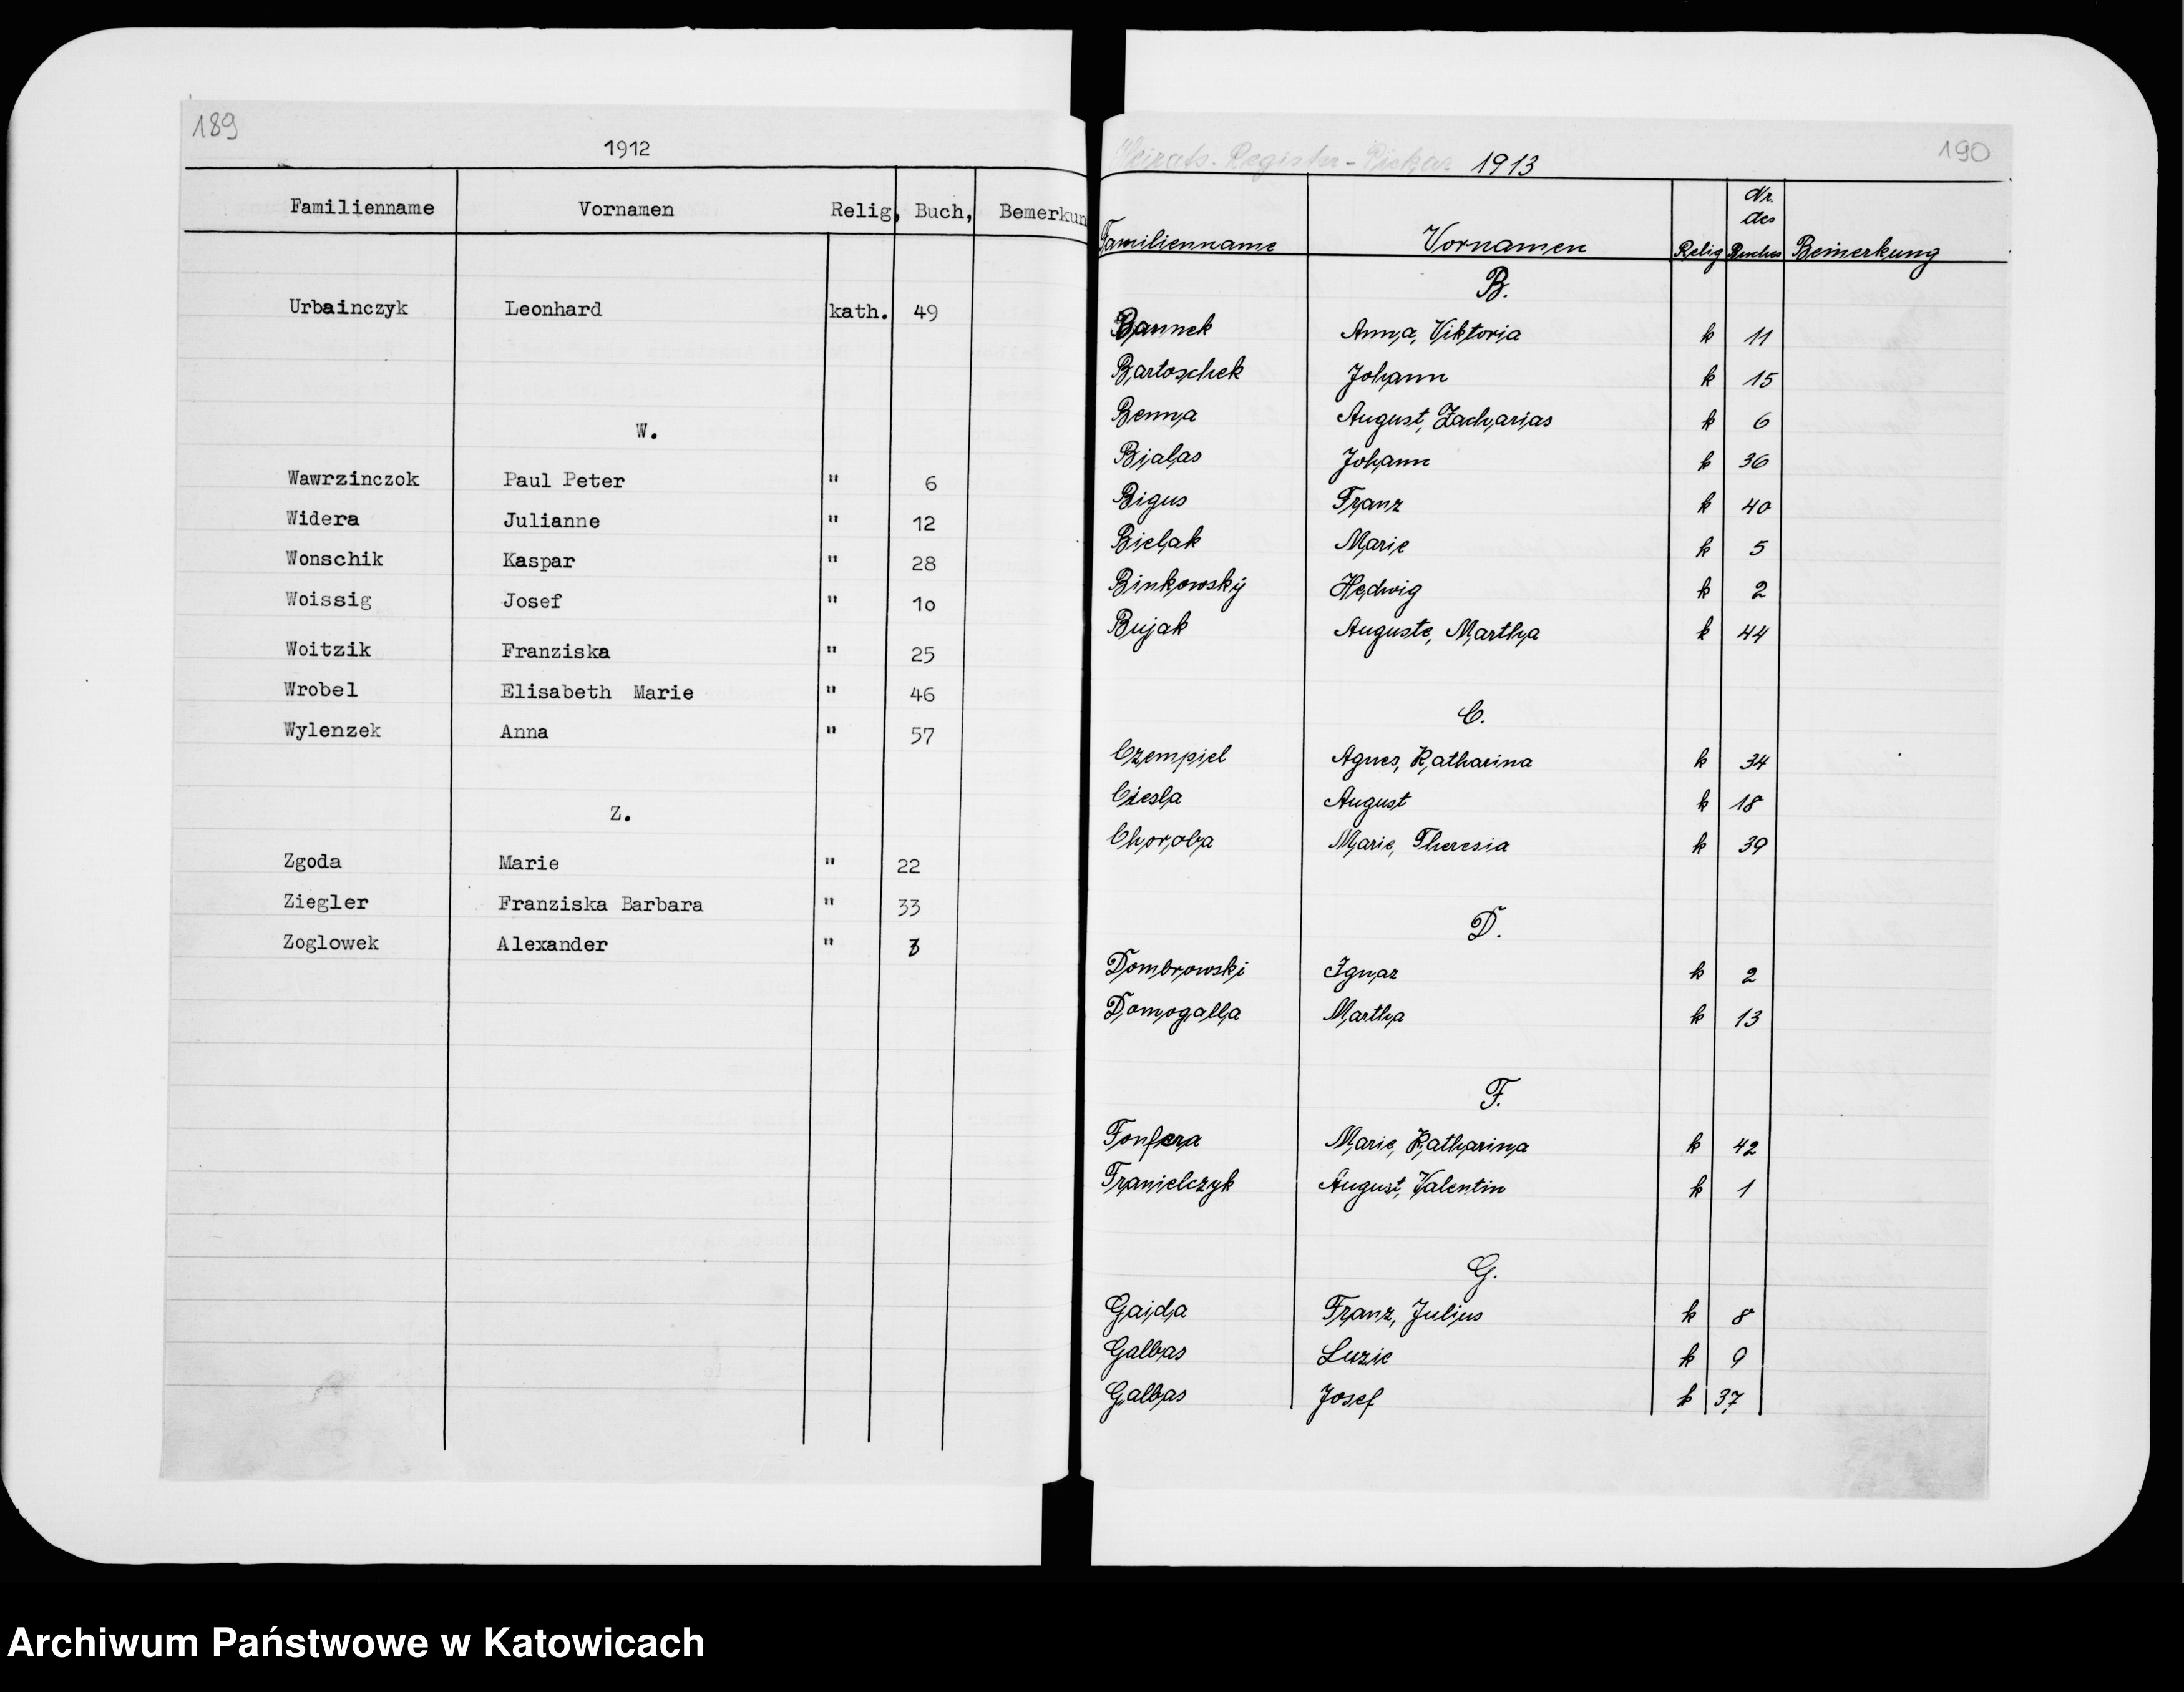 189
1912
Familienname Vornamen Relig, Buch, Bemerkun
Urbainczyk Leonhard kath. 49
W.
Wawrzinczok Paul Peter " 6
Widera Julianne " 12
Wonschik Kaspar " 28
Woissig Josef " 10
Woitzik Franziska " 25
Wrobel Elisabeth Marie " 46
Wylenzek Anna " 57
Z.
Zgoda Marie " 22
Ziegler Franziska Barbara " 33
Zoglowek Alexander "
Heirats-Register- 1913
190
Familienname Vornamen Relig Nr. des Buches Bemerkung
B.
Bannek Anna, Viktoria k 11
Bartoschek Johann k 15
Benna August, Zacharias k 6
Bialas Johann k 36
Bigus Franz k 40
Bielak Marie k 5
Binkowsky Hedwig k 2
Bujak Auguste, Martha k 44
C.
Czempiel Agnes, Katharina k 34
Ciesla August k 18
Choroba Marie, Theresia k 39
D.
Dombrowski Ignaz k 2
Domogalla Martha k 13
F.
Fonfera Marie, Katharina k 42
Franielczyk August, Valentin k 1
G.
Gaida Franz, Julius k 8
Galbas Luzie k 9
Galbas Josef k 37
Archiwum Państwowe w Katowicach